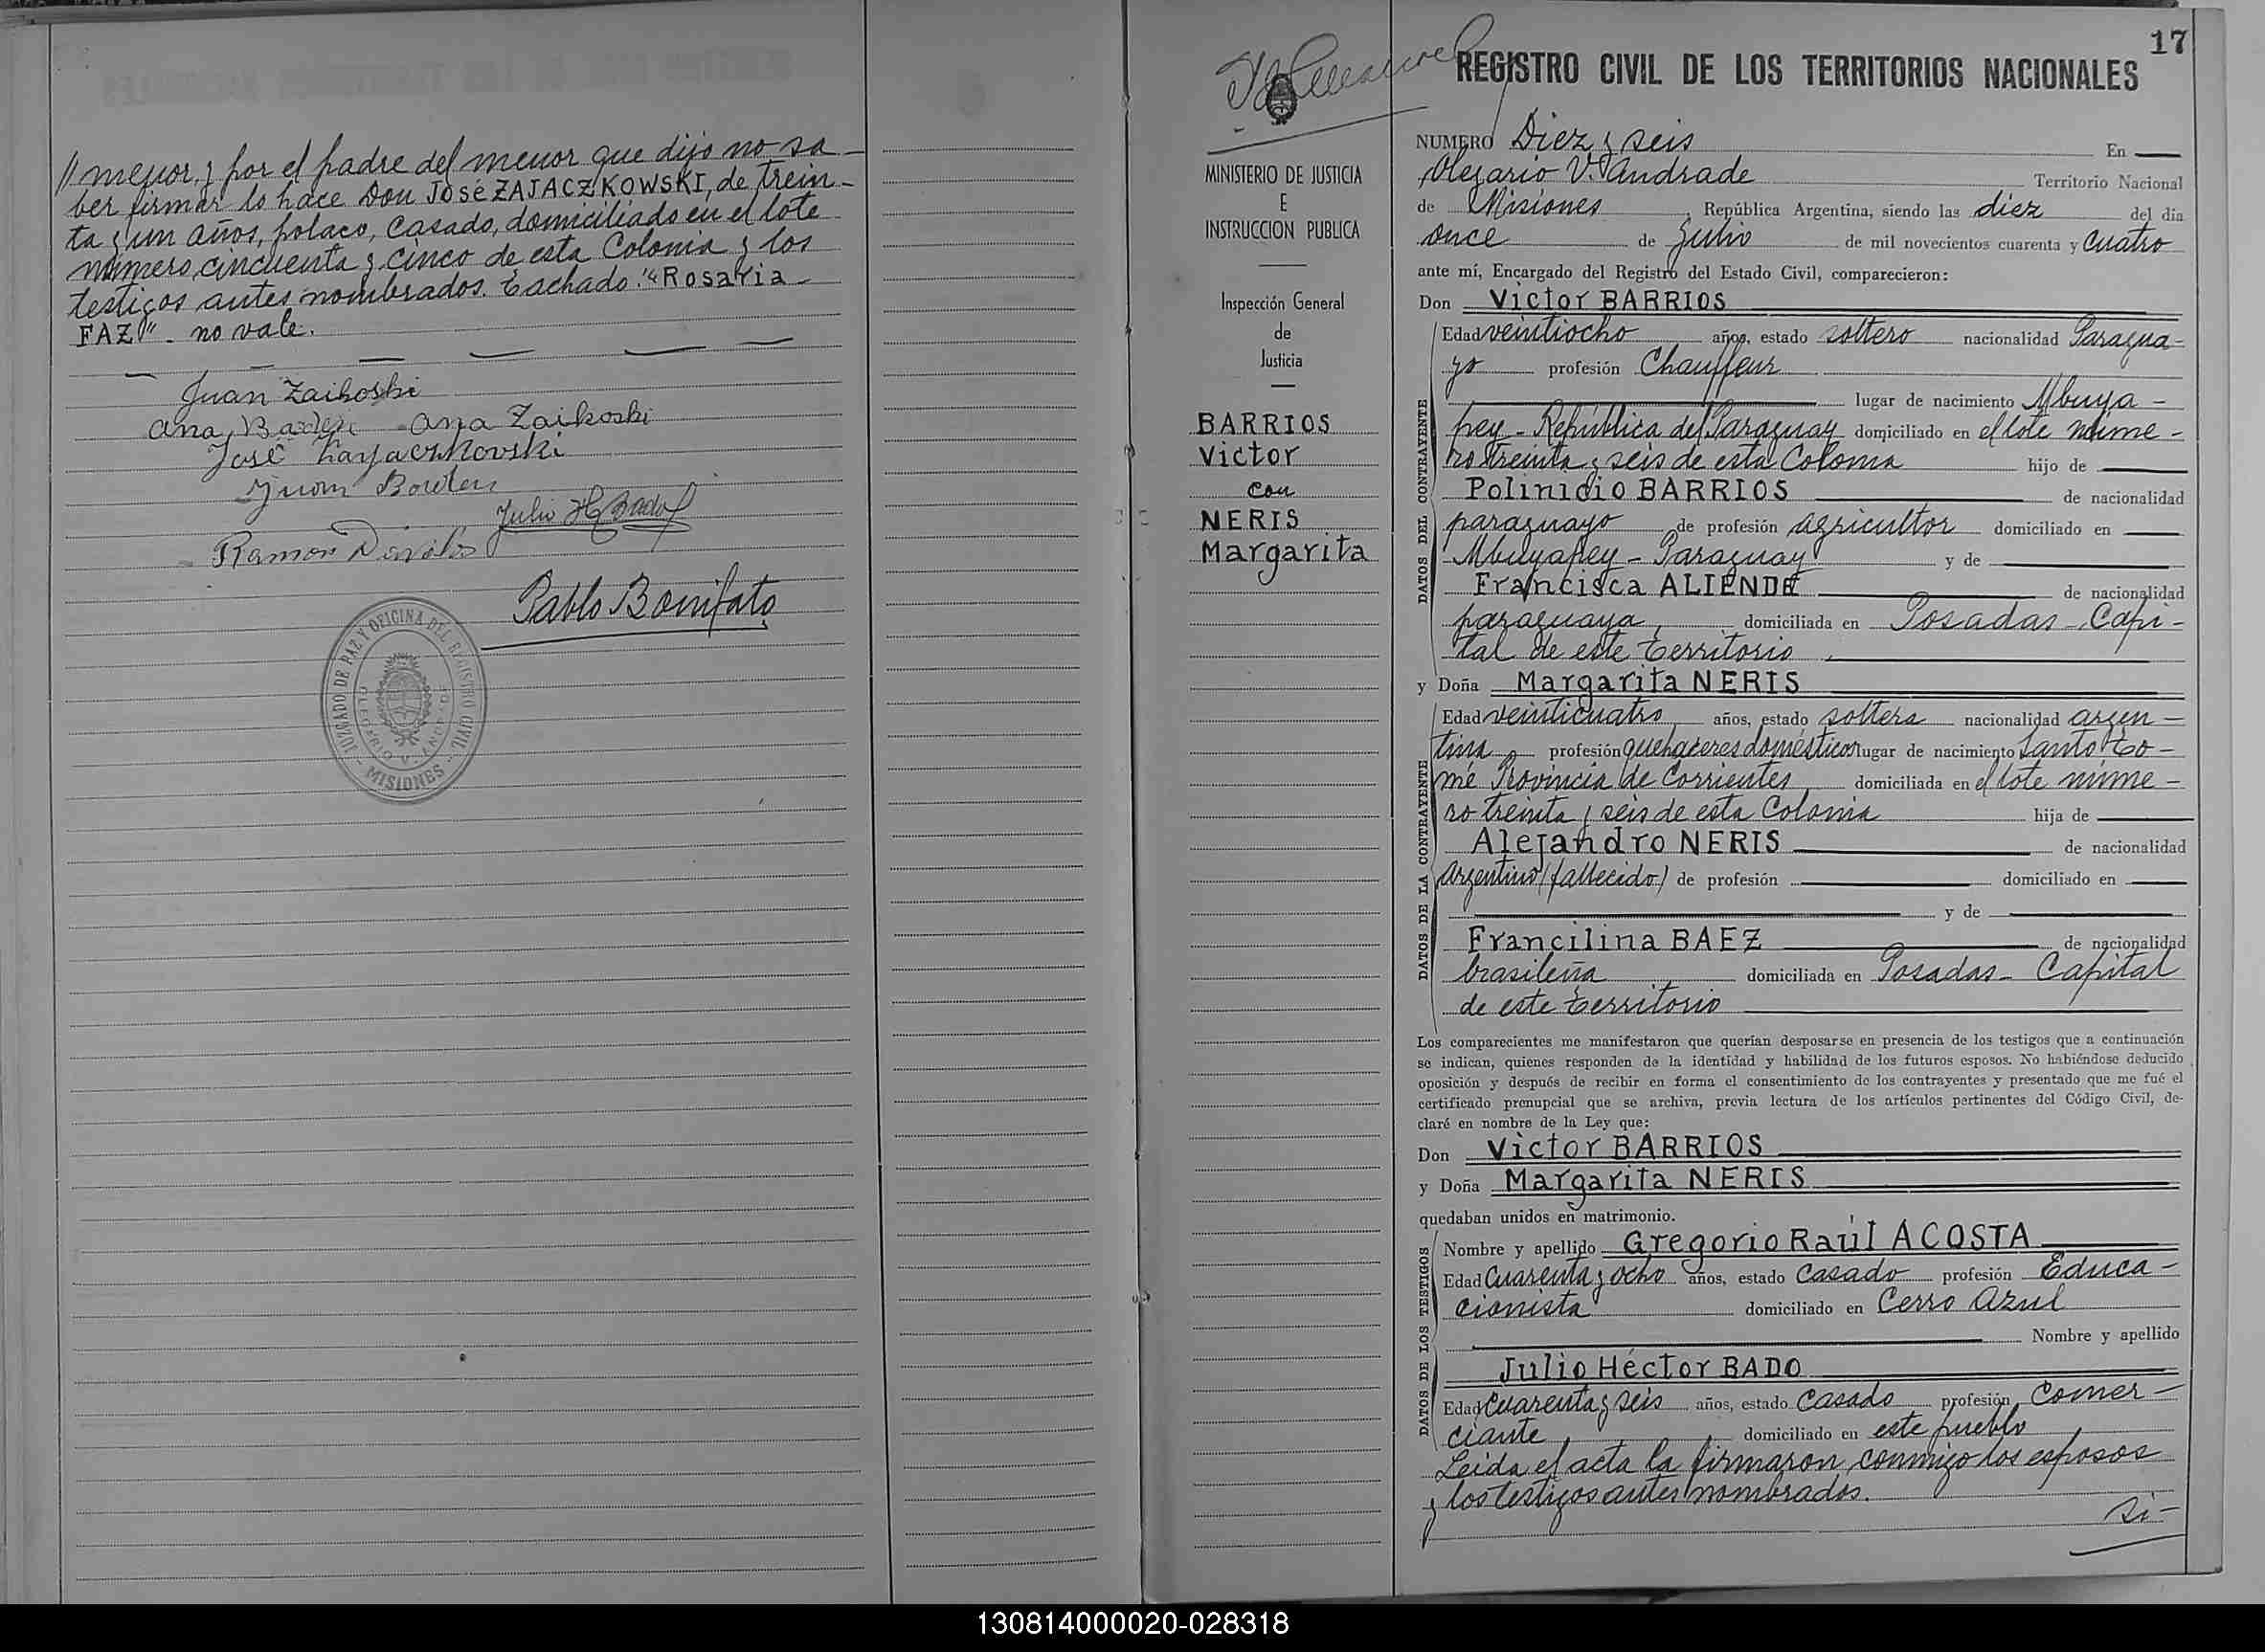 // menor, y por el padre del menor que dijo no sa-
ber firmar lo hace Don José ZAJACZKOWSKI, de trein-
ta y un años, polaco, casado, domiciliado en el lote
número cincuenta y cinco de esta Colonia y los
testigos antes nombrados. Tachado: "Rosaria
FAZ" - no vale.
Juan Zaikoski
Ana Baden Ana Zaikoski
José Zayaczkovski
Juan
Julio H. Bado
Ramon Davalos
Pablo Bonifato
JUZGADO DE PAZ Y OFICINA DEL REGISTRO CIVIL
OLEGARIO V. ANDRADE
MISIONES
17
REGISTRO CIVIL DE LOS TERRITORIOS NACIONALES
MINISTERIO DE JUSTICIA
E
INSTRUCCION PUBLICA
Inspección General
de
Justicia
BARRIOS
Victor
con
NERIS
Margarita
NUMERO Diez y seis En
Olegario V. Andrade Territorio Nacional
de Misiones, República Argentina, siendo las diez del día
once de Julio de mil novecientos cuarenta y cuatro
ante mí, Encargado del Registro del Estado Civil, comparecieron:
Don Victor BARRIOS
DATOS DEL CONTRAYENTE
Edad veintiocho años, estado soltero nacionalidad Paragua-
yo profesión Chauffeur
lugar de nacimiento Mbuya-
pey - República del Paraguay domiciliado en el lote núme-
ro treinta y seis de esta Colonia hijo de
Polinicio BARRIOS de nacionalidad
paraguayo de profesión agricultor domiciliado en
Mbuyapey - Paraguay y de
Francisca ALIENDE de nacionalidad
paraguaya, domiciliada en Posadas - Capi-
tal de este Territorio.
y Doña Margarita NERIS
DATOS DE LA CONTRAYENTE
Edad veinticuatro años, estado soltera nacionalidad argen-
tina profesión quehaceres domésticos lugar de nacimiento Santo To-
mé Provincia de Corrientes domiciliada en el lote núme-
ro treinta y seis de esta Colonia hija de
Alejandro NERIS de nacionalidad
Argentino (fallecido) de profesión domiciliado en
y de
Francilina BAEZ de nacionalidad
brasileña domiciliada en Posadas - Capital
de este Territorio
Los comparecientes me manifestaron que querían desposarse en presencia de los testigos que a continuación
se indican, quienes responden de la identidad y habilidad de los futuros esposos. No habiéndose deducido
oposición y después de recibir en forma el consentimiento de los contrayentes y presentado que me fué el
certificado prenupcial que se archiva, previa lectura de los artículos pertinentes del Código Civil, de-
claré en nombre de la Ley que:
Don Victor BARRIOS
y Doña Margarita NERIS
quedaban unidos en matrimonio.
DATOS DE LOS TESTIGOS
Nombre y apellido Gregorio Raúl ACOSTA
Edad Cuarenta y ocho años, estado casado profesión Educa-
cionista domiciliado en Cerro Azul
Nombre y apellido
Julio Héctor BADO
Edad Cuarenta y seis años, estado casado profesión Comer-
ciante domiciliado en este pueblo
Leída el acta la firmaron conmigo los esposos
y los testigos antes nombrados.
si-
130814000020-028318